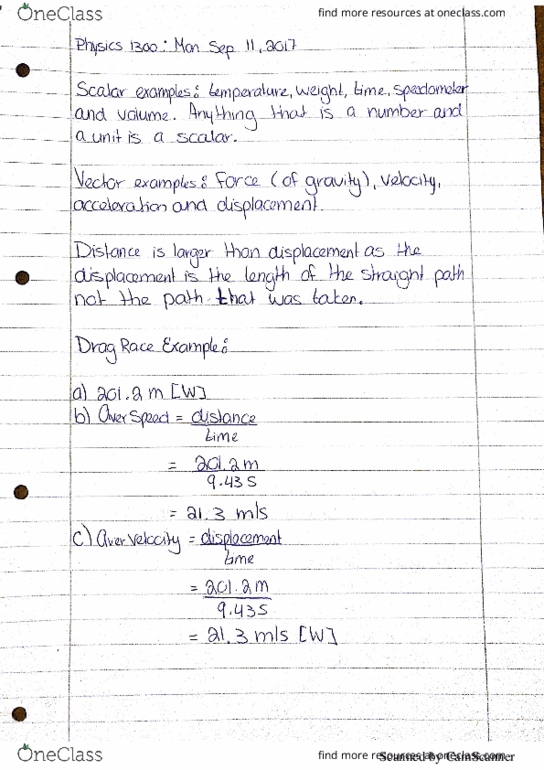 OneClass find more resources at oneclass.com
Physics 1300: Mon Sep 11, 2017
Scalar examples: temperature, weight, time, speedometer
and volume. Anything that is a number and
a unit is a scalar.
Vector examples: Force (of gravity), velocity,
acceleration and displacement.
Distance is larger than displacement as the
displacement is the length of the straight path
not the path that was taken.
Drag Race Example:
a) 201.2 m [W]
b) Aver Speed = distance
time
= 201.2 m
9.43 s
= 21.3 m/s
c) Aver Velocity = displacement
time
= 201.2 m
9.43 s
= 21.3 m/s [W]
OneClass find more resources at oneclass.com
Scanned by CamScanner